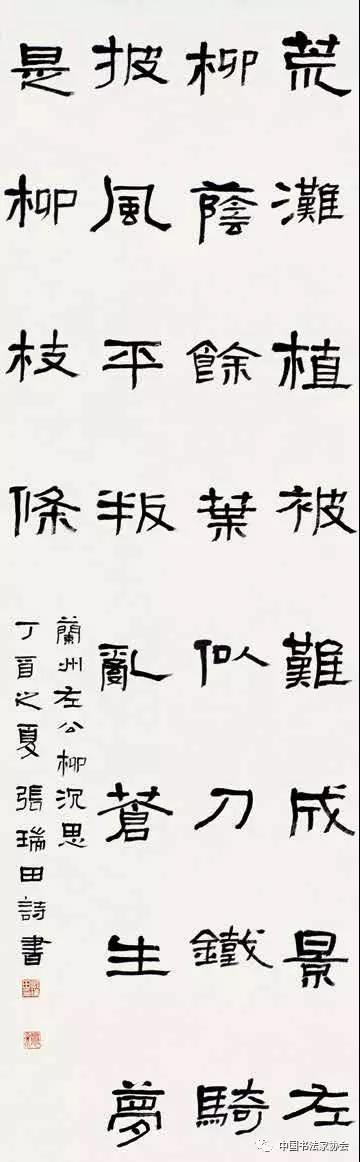 荒灘植被難成景左
柳蔭餘葉似刀鐵騎
披風平叛亂蒼生夢
是柳枝條
蘭州左公柳沉思
丁酉之夏張瑞田詩書
中国书法家协会